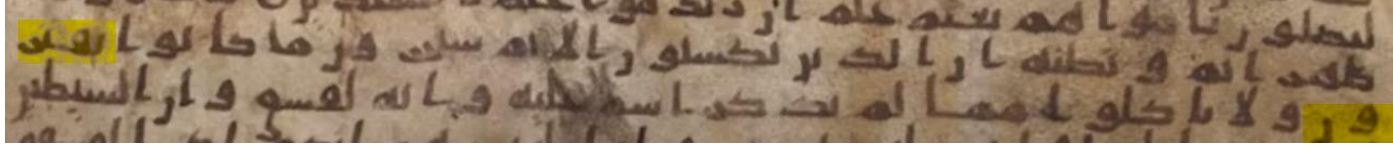 ليضلون باهوايهم بغير علم ان ربك هو اعلم
ظهر الاثم و بطنه ان الذين يكسبون الاثم سيجزون بما كانوا يقتر
فون و لا تاكلوا مما لم يذكر اسم الله عليه و انه لفسق و ان الشيطين